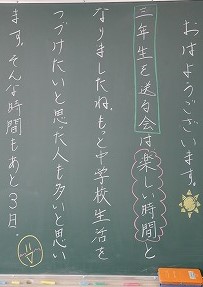 おはようございます。
三年生を送る会は楽しい時間と
なりましたね。もっと中学校生活を
つづけたいと思った人も多いと思い
ます。そんな時間もあと3日。